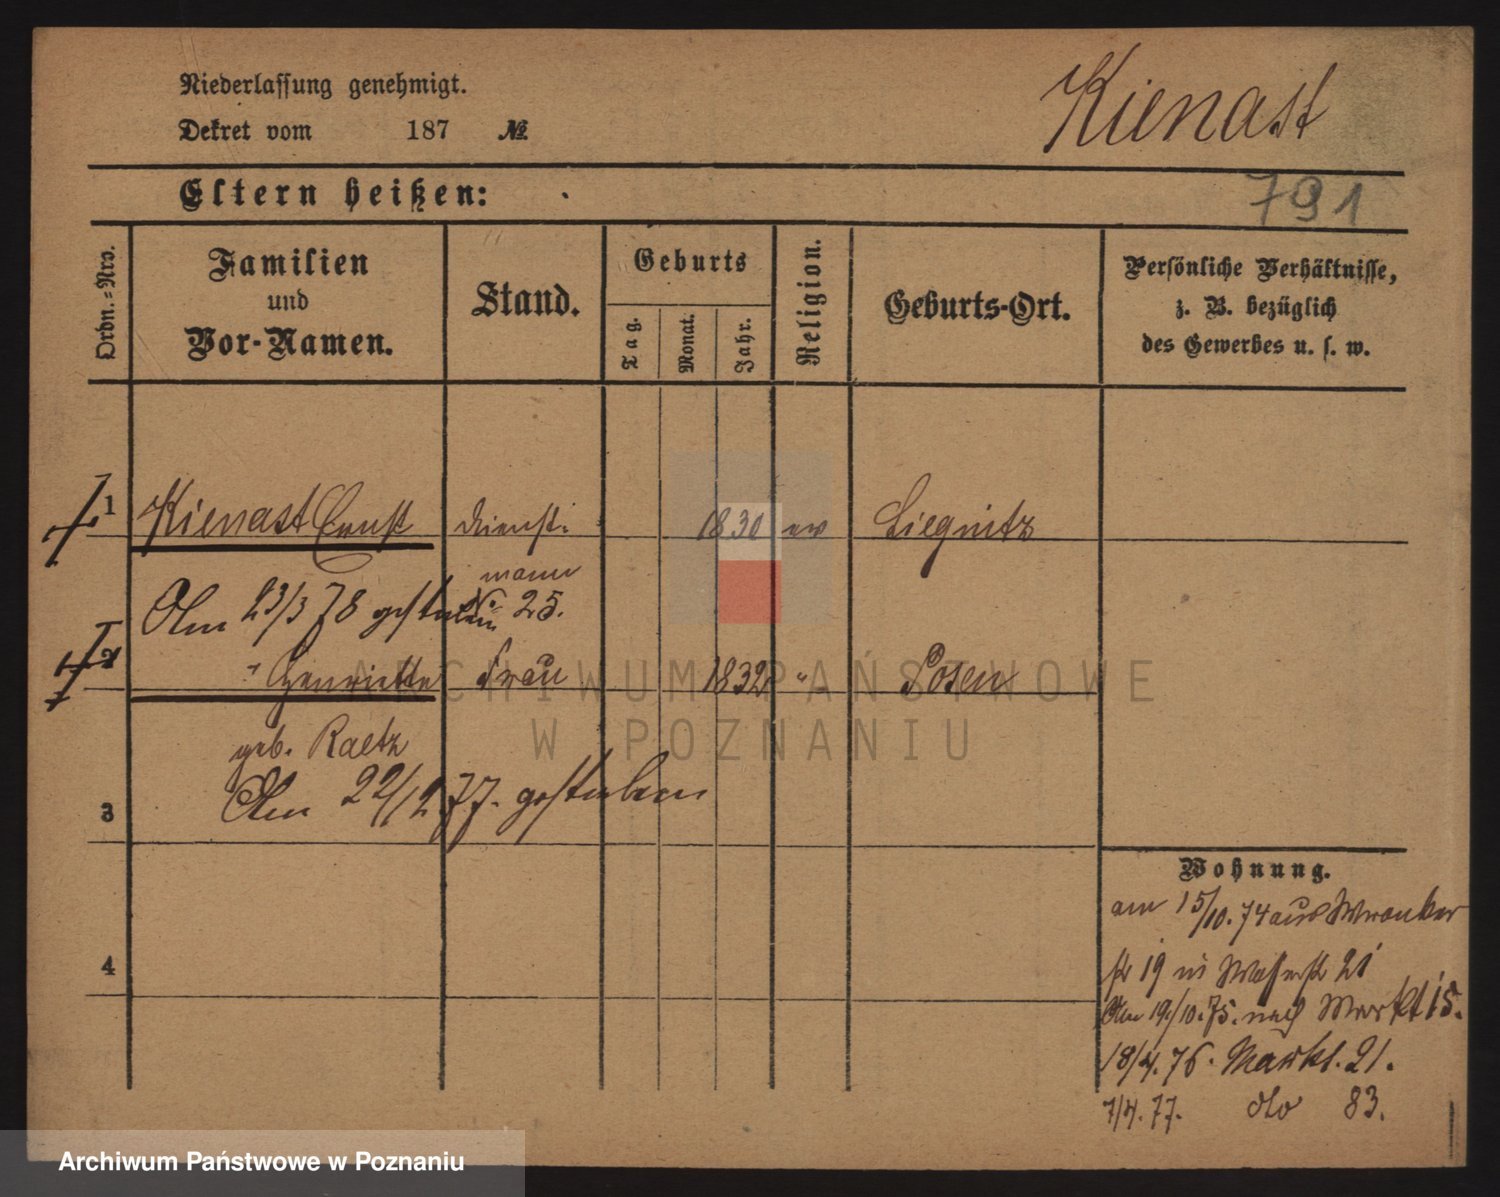 Niederlassung genehmigt.
Kienast
Dekret vom 187 №
Eltern heißen:
791
Ordn.=Nro.
Familien
und
Vor-Namen.
Stand.
Geburts
Tag.
Monat.
Jahr.
Religion.
Geburts-Ort.
Persönliche Verhältnisse,
z. B. bezüglich
des Gewerbes u. s. w.
1 Kienast Ernst Dienst- 1830 ev Liegnitz
mann
Am 23/3 78 gestorben № 25.
2 " Henriette Frau 1832 " Posen
geb. Raetz
Am 22/12 77. gestorben
3
Wohnung.
am 15/10. 74 aus Wronker
str 19 in Wasserstr 21
4
Am 19/10. 75. nach Markt 15.
18/4. 76. Markt. 21.
7/4. 77. dto 83.
ARCHIWUM PAŃSTWOWE
W POZNANIU
Archiwum Państwowe w Poznaniu